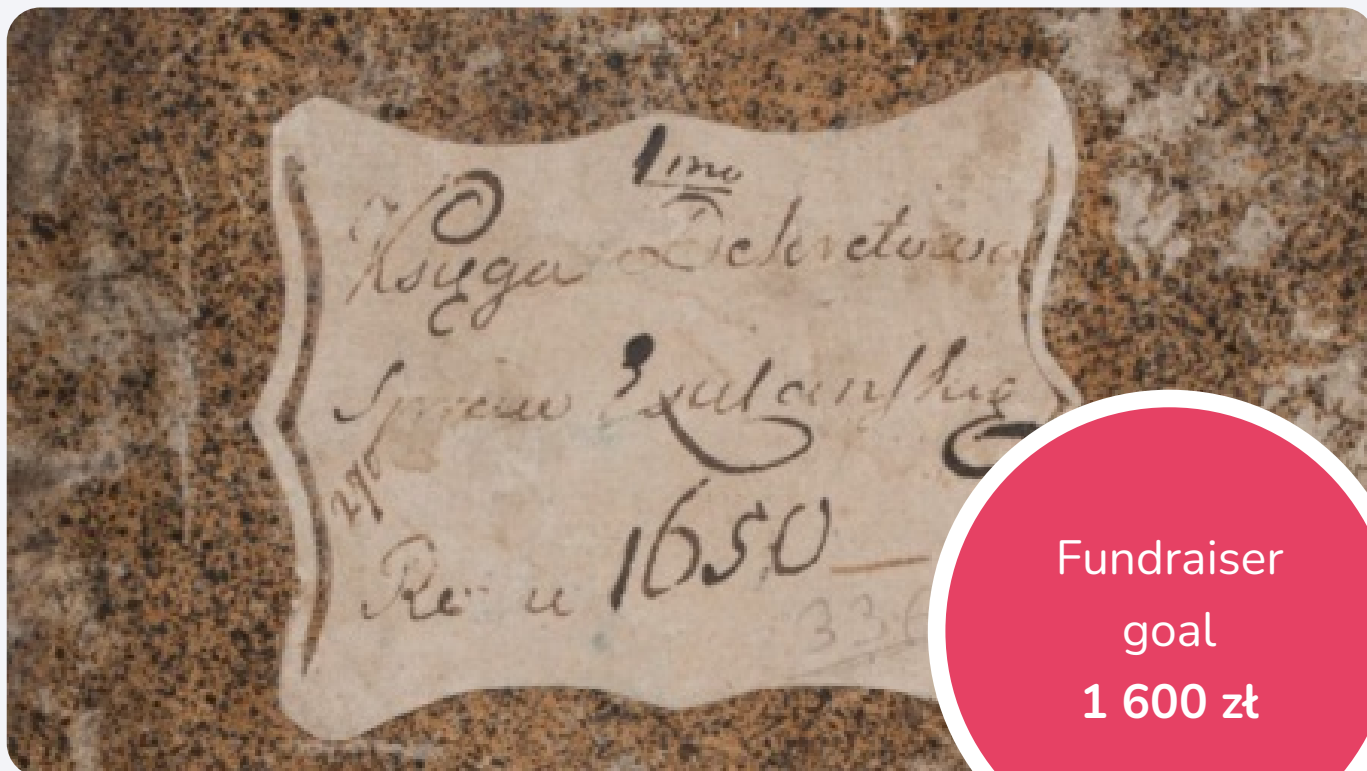 1mo
Księga Dekretowa
Spraw
Roku 1650
336
Fundraiser
goal
1 600 zł